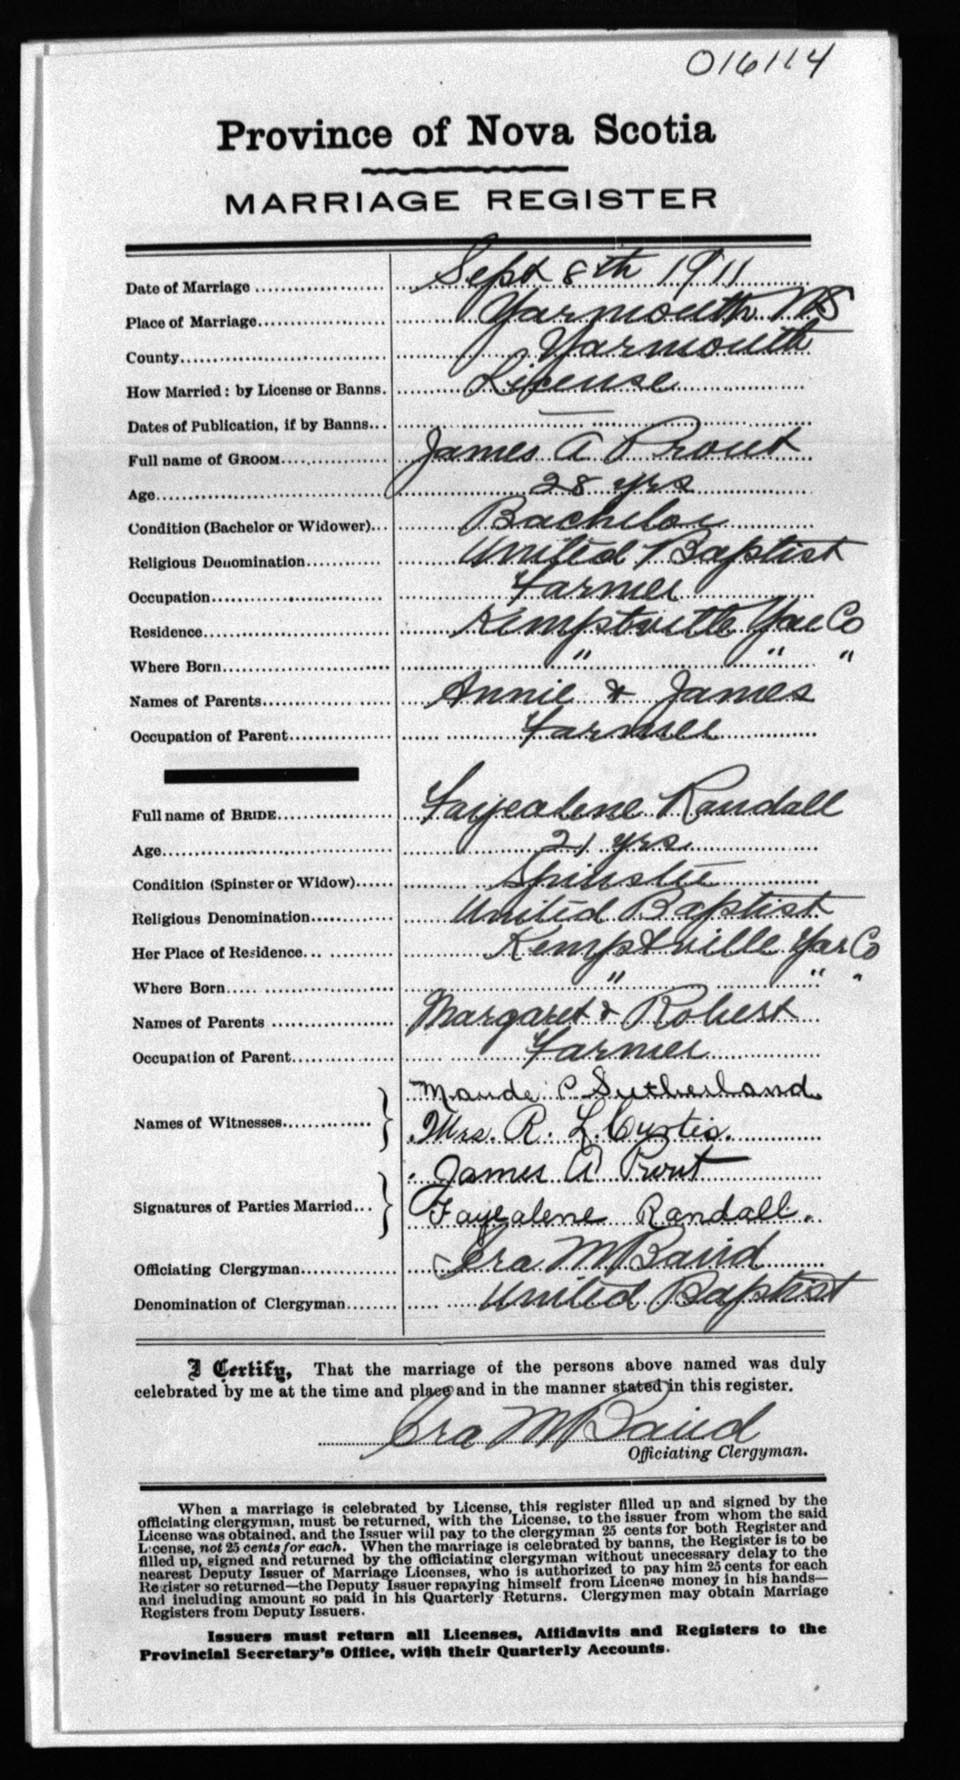 016114
Province of Nova Scotia
MARRIAGE REGISTER
Date of Marriage Sept 8th 1911
Place of Marriage Yarmouth NS
County Yarmouth
How Married: by License or Banns. License
Dates of Publication, if by Banns... —
Full name of GROOM James A Prout
Age 28 yrs
Condition (Bachelor or Widower)... Bachelor
Religious Denomination United Baptist
Occupation Farmer
Residence Kemptville Yar Co
Where Born " " "
Names of Parents Annie & James
Occupation of Parent Farmer
Full name of BRIDE Fayealene Randall
Age 21 yrs
Condition (Spinster or Widow) Spinster
Religious Denomination United Baptist
Her Place of Residence Kemptville Yar Co
Where Born " " "
Names of Parents Margaret & Robert
Occupation of Parent Farmer
Maude P Sutherland
Names of Witnesses
Mrs. R. L. Curtis.
James A Prout
Signatures of Parties Married...
Fayealene Randall.
Officiating Clergyman Ira M Baird
Denomination of Clergyman United Baptist
I Certify, That the marriage of the persons above named was duly
celebrated by me at the time and place and in the manner stated in this register.
Ira M Baird
Officiating Clergyman.
When a marriage is celebrated by License, this register filled up and signed by the
officiating clergyman, must be returned, with the License, to the issuer from whom the said
License was obtained, and the Issuer will pay to the clergyman 25 cents for both Register and
License, not 25 cents for each. When the marriage is celebrated by banns, the Register is to be
filled up, signed and returned by the officiating clergyman without unnecessary delay to the
nearest Deputy Issuer of Marriage Licenses, who is authorized to pay him 25 cents for each
Register so returned—the Deputy Issuer repaying himself from License money in his hands—
and including amount so paid in his Quarterly Returns. Clergymen may obtain Marriage
Registers from Deputy Issuers.
Issuers must return all Licenses, Affidavits and Registers to the
Provincial Secretary's Office, with their Quarterly Accounts.